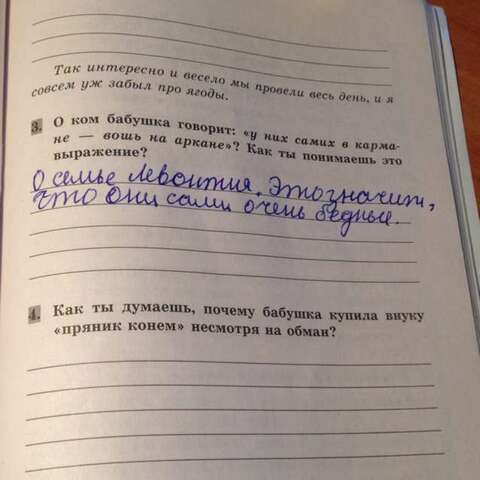 Так интересно и весело мы провели весь день, и я
совсем уж забыл про ягоды.
3. О ком бабушка говорит: «у них самих в карма-
не — вошь на аркане»? Как ты понимаешь это
выражение?
О семье Левонтия. Это значит,
что они сами очень бедные.
4. Как ты думаешь, почему бабушка купила внуку
«пряник конем» несмотря на обман?